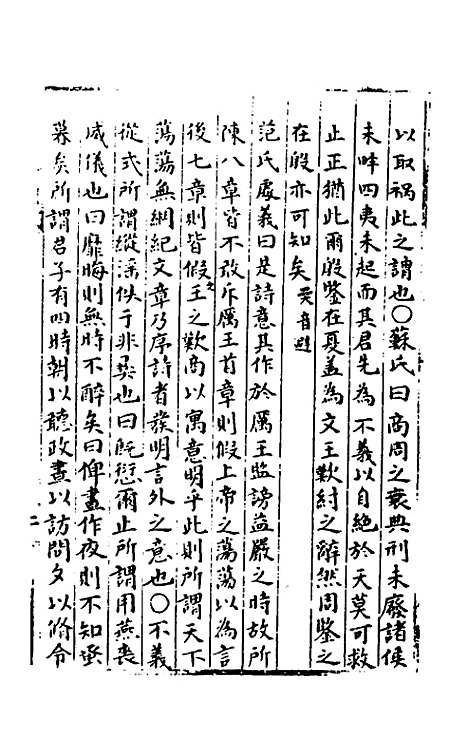 以取禍此之謂也〇蘇氏曰商周之衰典刑未廢諸侯
未畔四夷未起而其君先為不義以自絕於天莫可救
止正猶此爾殷鑒在夏盖為文王歎紂之辭然周鑒之
在殷亦可知矣
范氏處義曰是詩意其作於厲王監謗益嚴之時故所
陳八章皆不敢斥厲王首章則假上帝之蕩蕩以為言
後七章則皆假文王之歎商以寓意明乎此則所謂天下
蕩蕩無綱紀文章乃序詩者發明言外之意也〇不義
從式所謂縱淫佚于非彝也曰旣愆爾止所謂用燕喪
威儀也曰靡晦則無時不醉矣曰俾晝作夜則不知蚤
暮矣所謂君子有四時朝以聽政晝以訪問夕以脩令